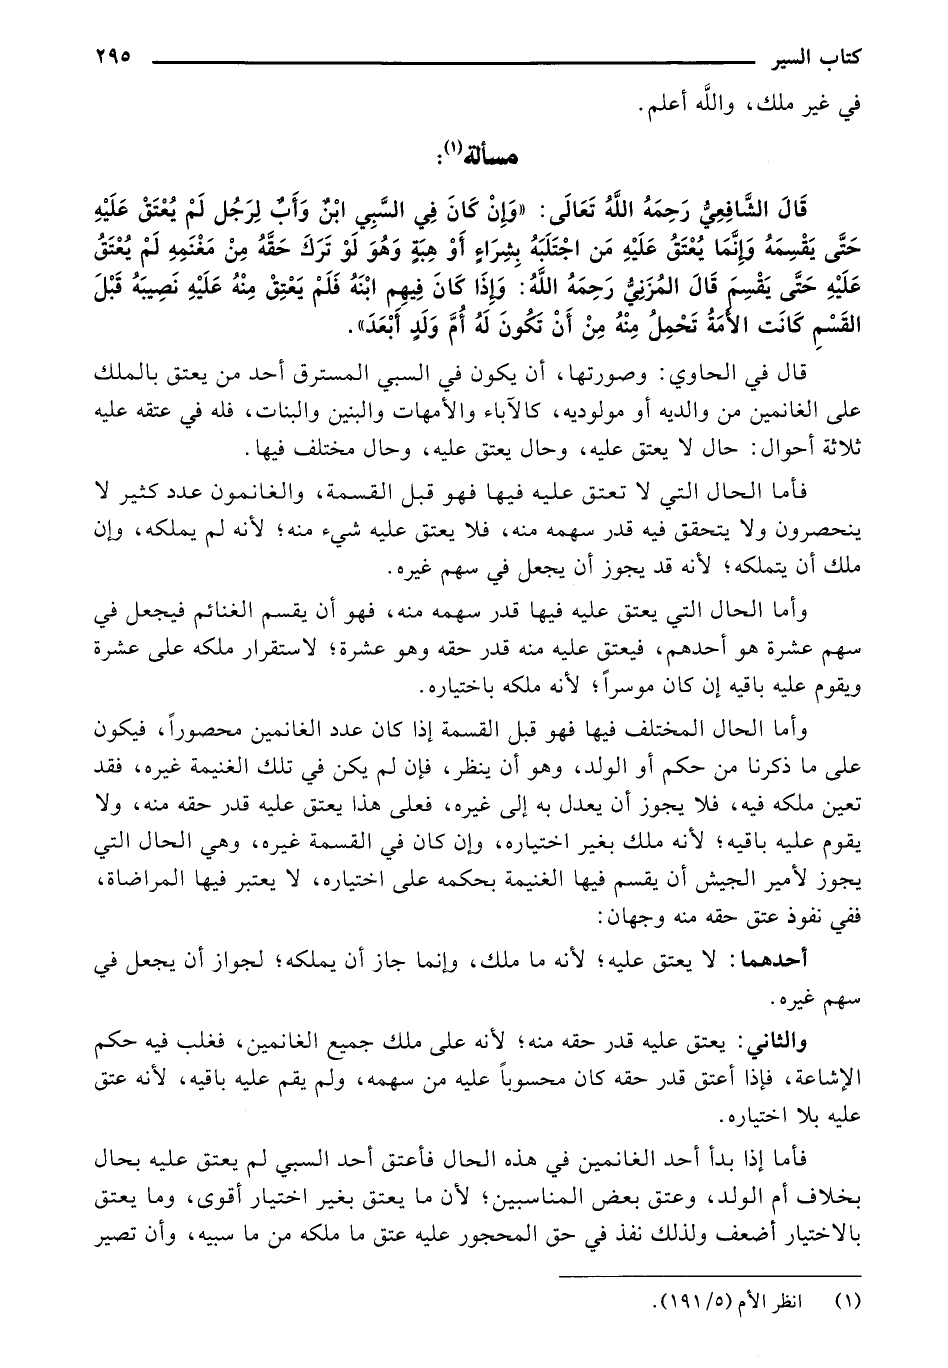 كتاب السير ٢٩٥
في غير ملك، واللَّه أعلم.
مسألة(١):
قَالَ الشَّافِعِيُّ رَحِمَهُ اللَّهُ تَعَالَى: «وَإِنْ كَانَ فِي السَّبِي ابْنٌ وَأَبٌ لِرَجُل لَمْ يُعْتَقْ عَلَيْهِ
حَتَّى يَقْسِمَهُ وَإِنَّمَا يُعْتَقُ عَلَيْهِ مَن اجْتَلَبَهُ بِشِرَاءٍ أَوْ هِبَةٍ وَهُوَ لَوْ تَرَكَ حَقَّهُ مِنْ مَغْنَمِهِ لَمْ يُعْتَقُ
عَلَيْهِ حَتَّى يَقْسِمَ قَالَ المُزَنِيُّ رَحِمَهُ اللَّهُ: وَإِذَا كَانَ فِيهِم ابْنُهُ فَلَمْ يَعْتِقْ مِنْهُ عَلَيْهِ نَصِيبَهُ قَبْلَ
القَسْمِ كَانَت الأَمَةُ تَحْمِلُ مِنْهُ مِنْ أَنْ تَكُونَ لَهُ أُمَّ وَلَدٍ أَبْعَدَ».
قال في الحاوي: وصورتها، أن يكون في السبي المسترق أحد من يعتق بالملك
على الغانمين من والديه أو مولوديه، كالآباء والأمهات والبنين والبنات، فله في عتقه عليه
ثلاثة أحوال: حال لا يعتق عليه، وحال يعتق عليه، وحال مختلف فيها.
فأما الحال التي لا تعتق عليه فيها فهو قبل القسمة، والغانمون عدد كثير لا
ينحصرون ولا يتحقق فيه قدر سهمه منه، فلا يعتق عليه شيء منه؛ لأنه لم يملكه، وإن
ملك أن يتملكه؛ لأنه قد يجوز أن يجعل في سهم غيره.
وأما الحال التي يعتق عليه فيها قدر سهمه منه، فهو أن يقسم الغنائم فيجعل في
سهم عشرة هو أحدهم، فيعتق عليه منه قدر حقه وهو عشرة؛ لاستقرار ملكه على عشرة
ويقوم عليه باقيه إن كان موسراً؛ لأنه ملكه باختياره.
وأما الحال المختلف فيها فهو قبل القسمة إذا كان عدد الغانمين محصوراً، فيكون
على ما ذكرنا من حكم أو الولد، وهو أن ينظر، فإن لم يكن في تلك الغنيمة غيره، فقد
تعين ملكه فيه، فلا يجوز أن يعدل به إلى غيره، فعلى هذا يعتق عليه قدر حقه منه، ولا
يقوم عليه باقيه؛ لأنه ملك بغير اختياره، وإن كان في القسمة غيره، وهي الحال التي
يجوز لأمير الجيش أن يقسم فيها الغنيمة بحكمه على اختياره، لا يعتبر فيها المراضاة،
ففي نفوذ عتق حقه منه وجهان:
أحدهما: لا يعتق عليه؛ لأنه ما ملك، وإنما جاز أن يملكه؛ لجواز أن يجعل في
سهم غيره.
والثاني: يعتق عليه قدر حقه منه؛ لأنه على ملك جميع الغانمين، فغلب فيه حكم
الإشاعة، فإذا أعتق قدر حقه كان محسوباً عليه من سهمه، ولم يقم عليه باقيه، لأنه عتق
عليه بلا اختياره.
فأما إذا بدأ أحد الغانمين في هذه الحال فأعتق أحد السبي لم يعتق عليه بحال
بخلاف أم الولد، وعتق بعض المناسبين؛ لأن ما يعتق بغير اختيار أقوى، وما يعتق
بالاختيار أضعف ولذلك نفذ في حق المحجور عليه عتق ما ملكه من ما سبيه، وأن تصير
(١) انظر الأم (٥/ ١٩١).